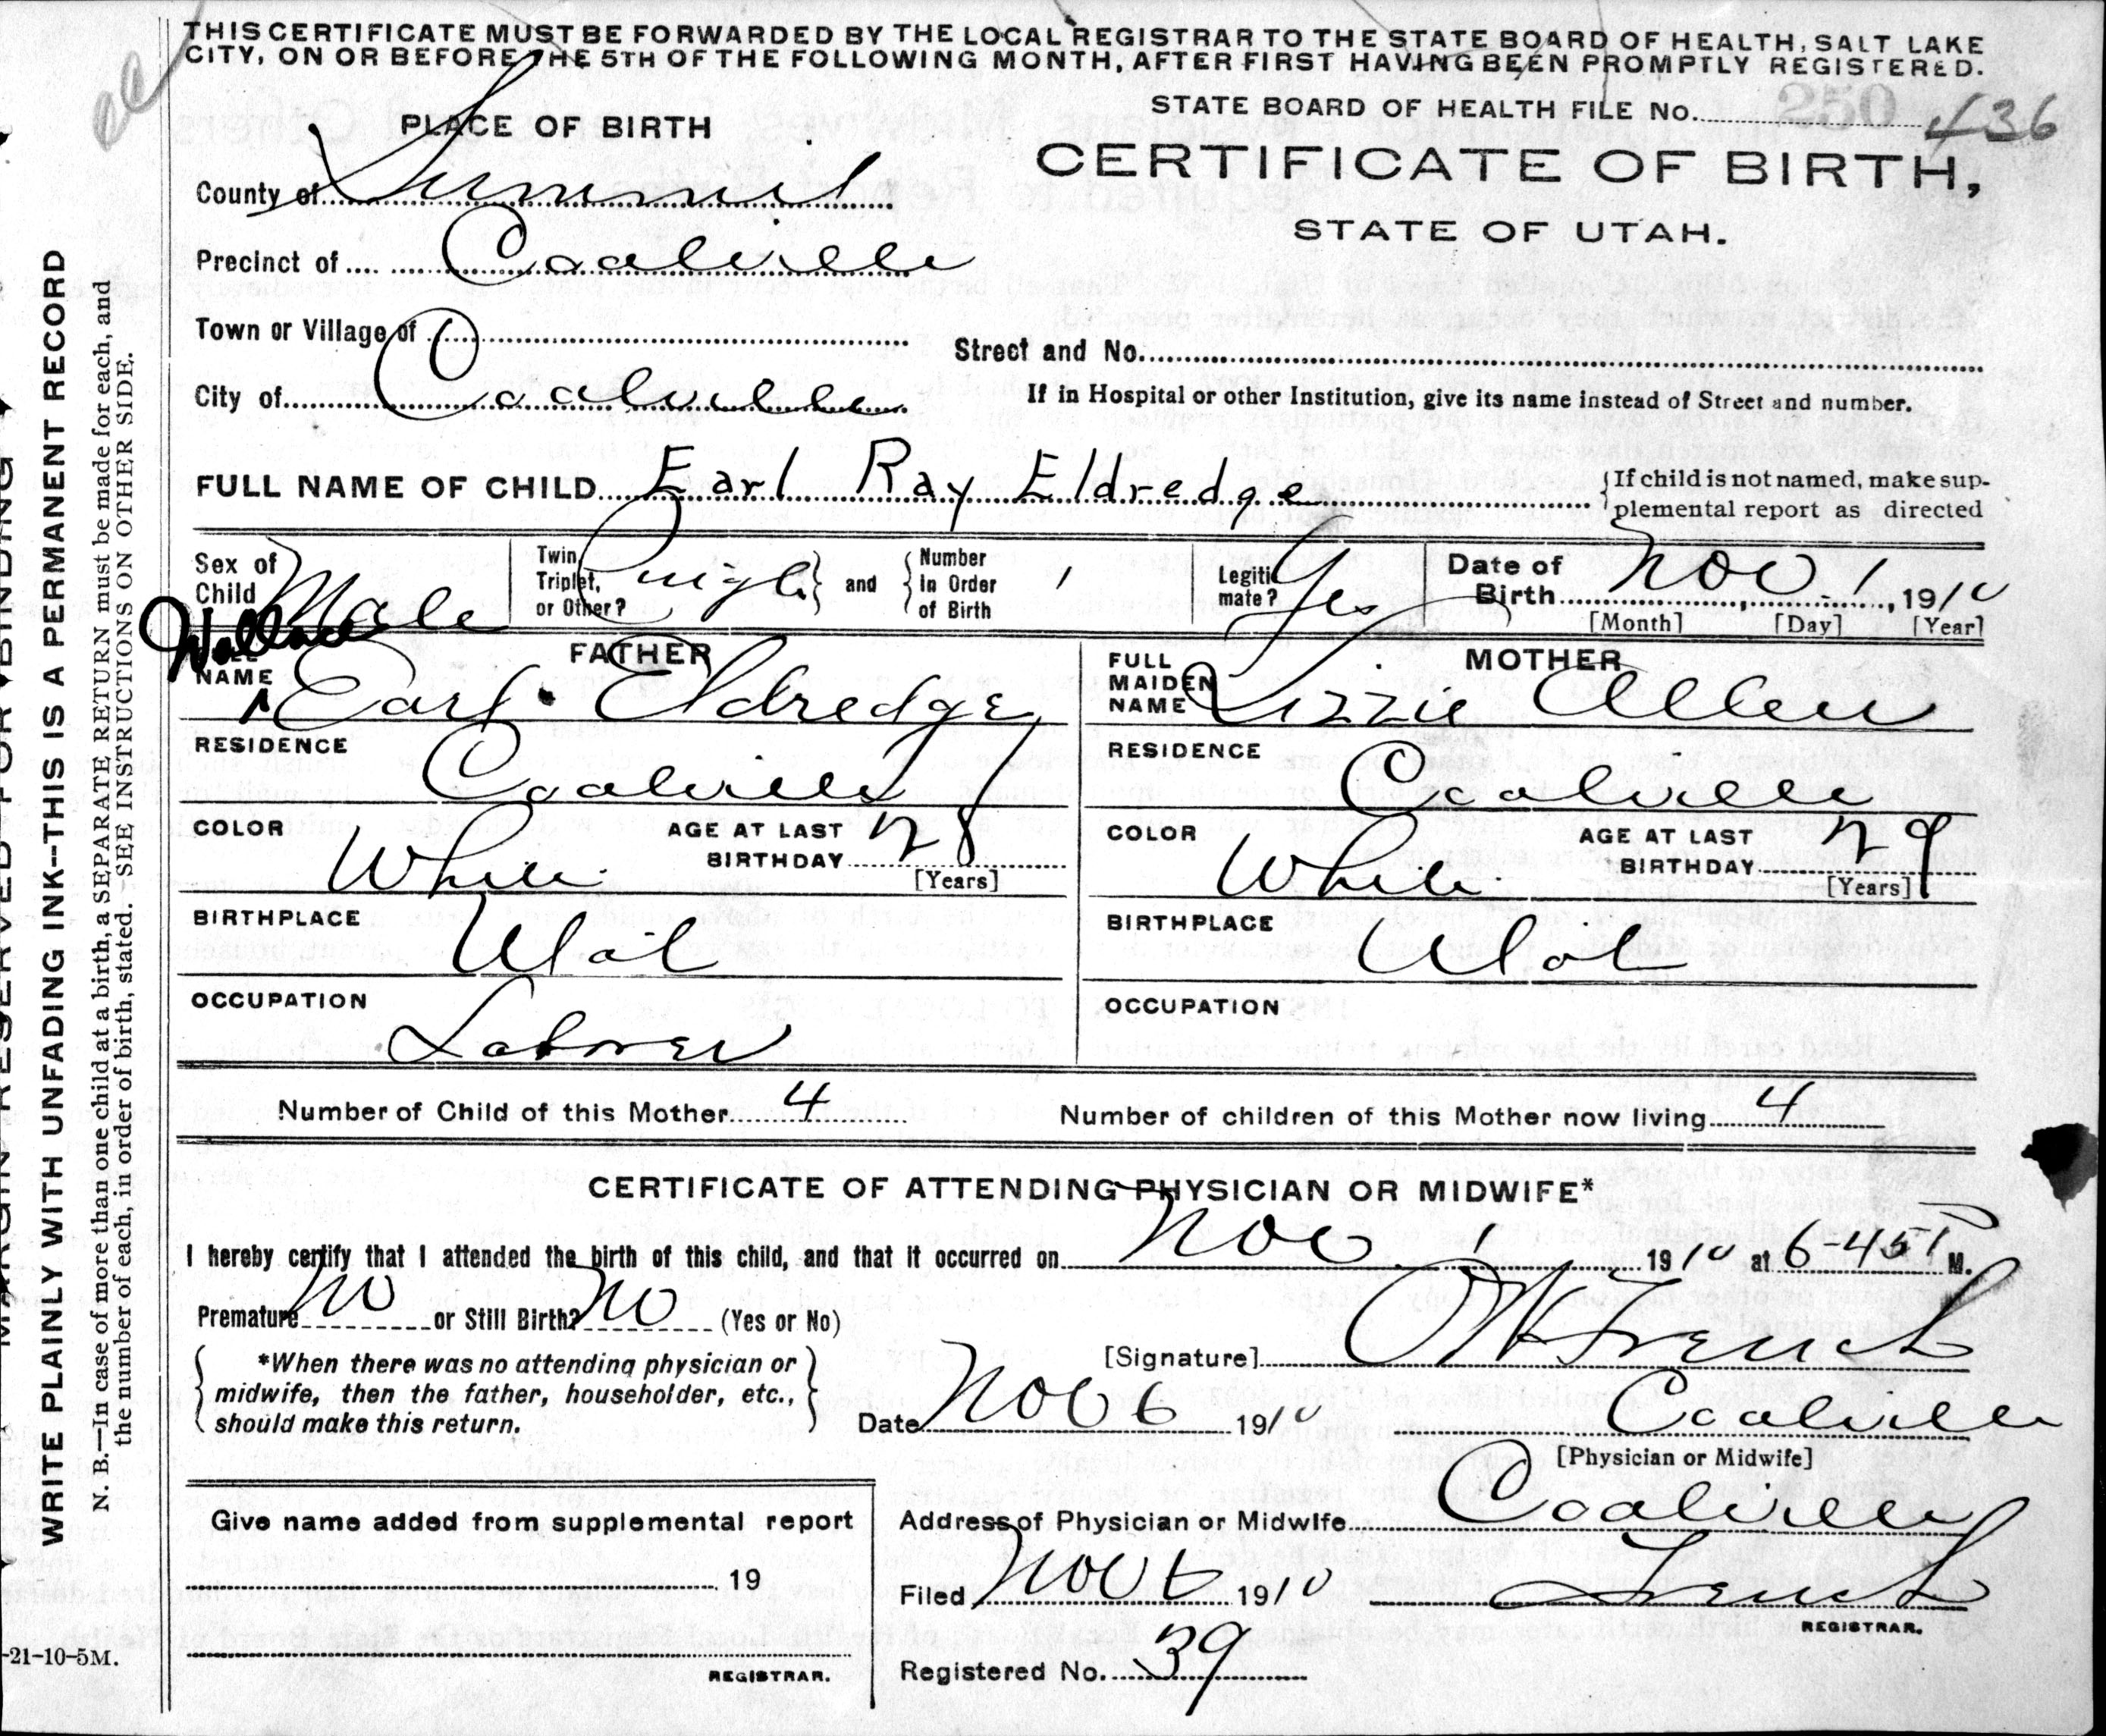 THIS CERTIFICATE MUST BE FORWARDED BY THE LOCAL REGISTRAR TO THE STATE BOARD OF HEALTH, SALT LAKE
CITY, ON OR BEFORE THE 5TH OF THE FOLLOWING MONTH, AFTER FIRST HAVING BEEN PROMPTLY REGISTERED.
STATE BOARD OF HEALTH FILE No. 250 436
PLACE OF BIRTH
CERTIFICATE OF BIRTH,
STATE OF UTAH.
County of Summit
Precinct of Coalville
Town or Village of
Street and No.
City of Coalville
If in Hospital or other Institution, give its name instead of Street and number.
FULL NAME OF CHILD Earl Ray Eldredge
If child is not named, make sup-
plemental report as directed
Sex of Child Male
Twin, Triplet, or Other? Single and Number In Order of Birth 1
Legitimate? Yes
Date of Birth Nov 1, 1910
[Month] [Day] [Year]
FATHER
NAME Wallace Earl Eldredge
RESIDENCE Coalville
COLOR White AGE AT LAST BIRTHDAY 28 [Years]
BIRTHPLACE Utah
OCCUPATION Laborer
MOTHER
FULL MAIDEN NAME Lizzie Allen
RESIDENCE Coalville
COLOR White AGE AT LAST BIRTHDAY 29 [Years]
BIRTHPLACE Utah
OCCUPATION
Number of Child of this Mother 4 Number of children of this Mother now living 4
CERTIFICATE OF ATTENDING PHYSICIAN OR MIDWIFE*
I hereby certify that I attended the birth of this child, and that it occurred on Nov 1 1910 at 6-45 P M.
Premature No or Still Birth? No (Yes or No)
*When there was no attending physician or
midwife, then the father, householder, etc.,
should make this return.
[Signature] French
Date Nov 6 1910 Coalville
[Physician or Midwife]
Give name added from supplemental report
19
REGISTRAR.
Address of Physician or Midwife Coalville
Filed Nov 6 1910 French
REGISTRAR.
Registered No. 39
MARGIN RESERVED FOR BINDING
WRITE PLAINLY WITH UNFADING INK--THIS IS A PERMANENT RECORD
N. B.—In case of more than one child at a birth, a SEPARATE RETURN must be made for each, and
the number of each, in order of birth, stated. SEE INSTRUCTIONS ON OTHER SIDE.
-21-10-5M.